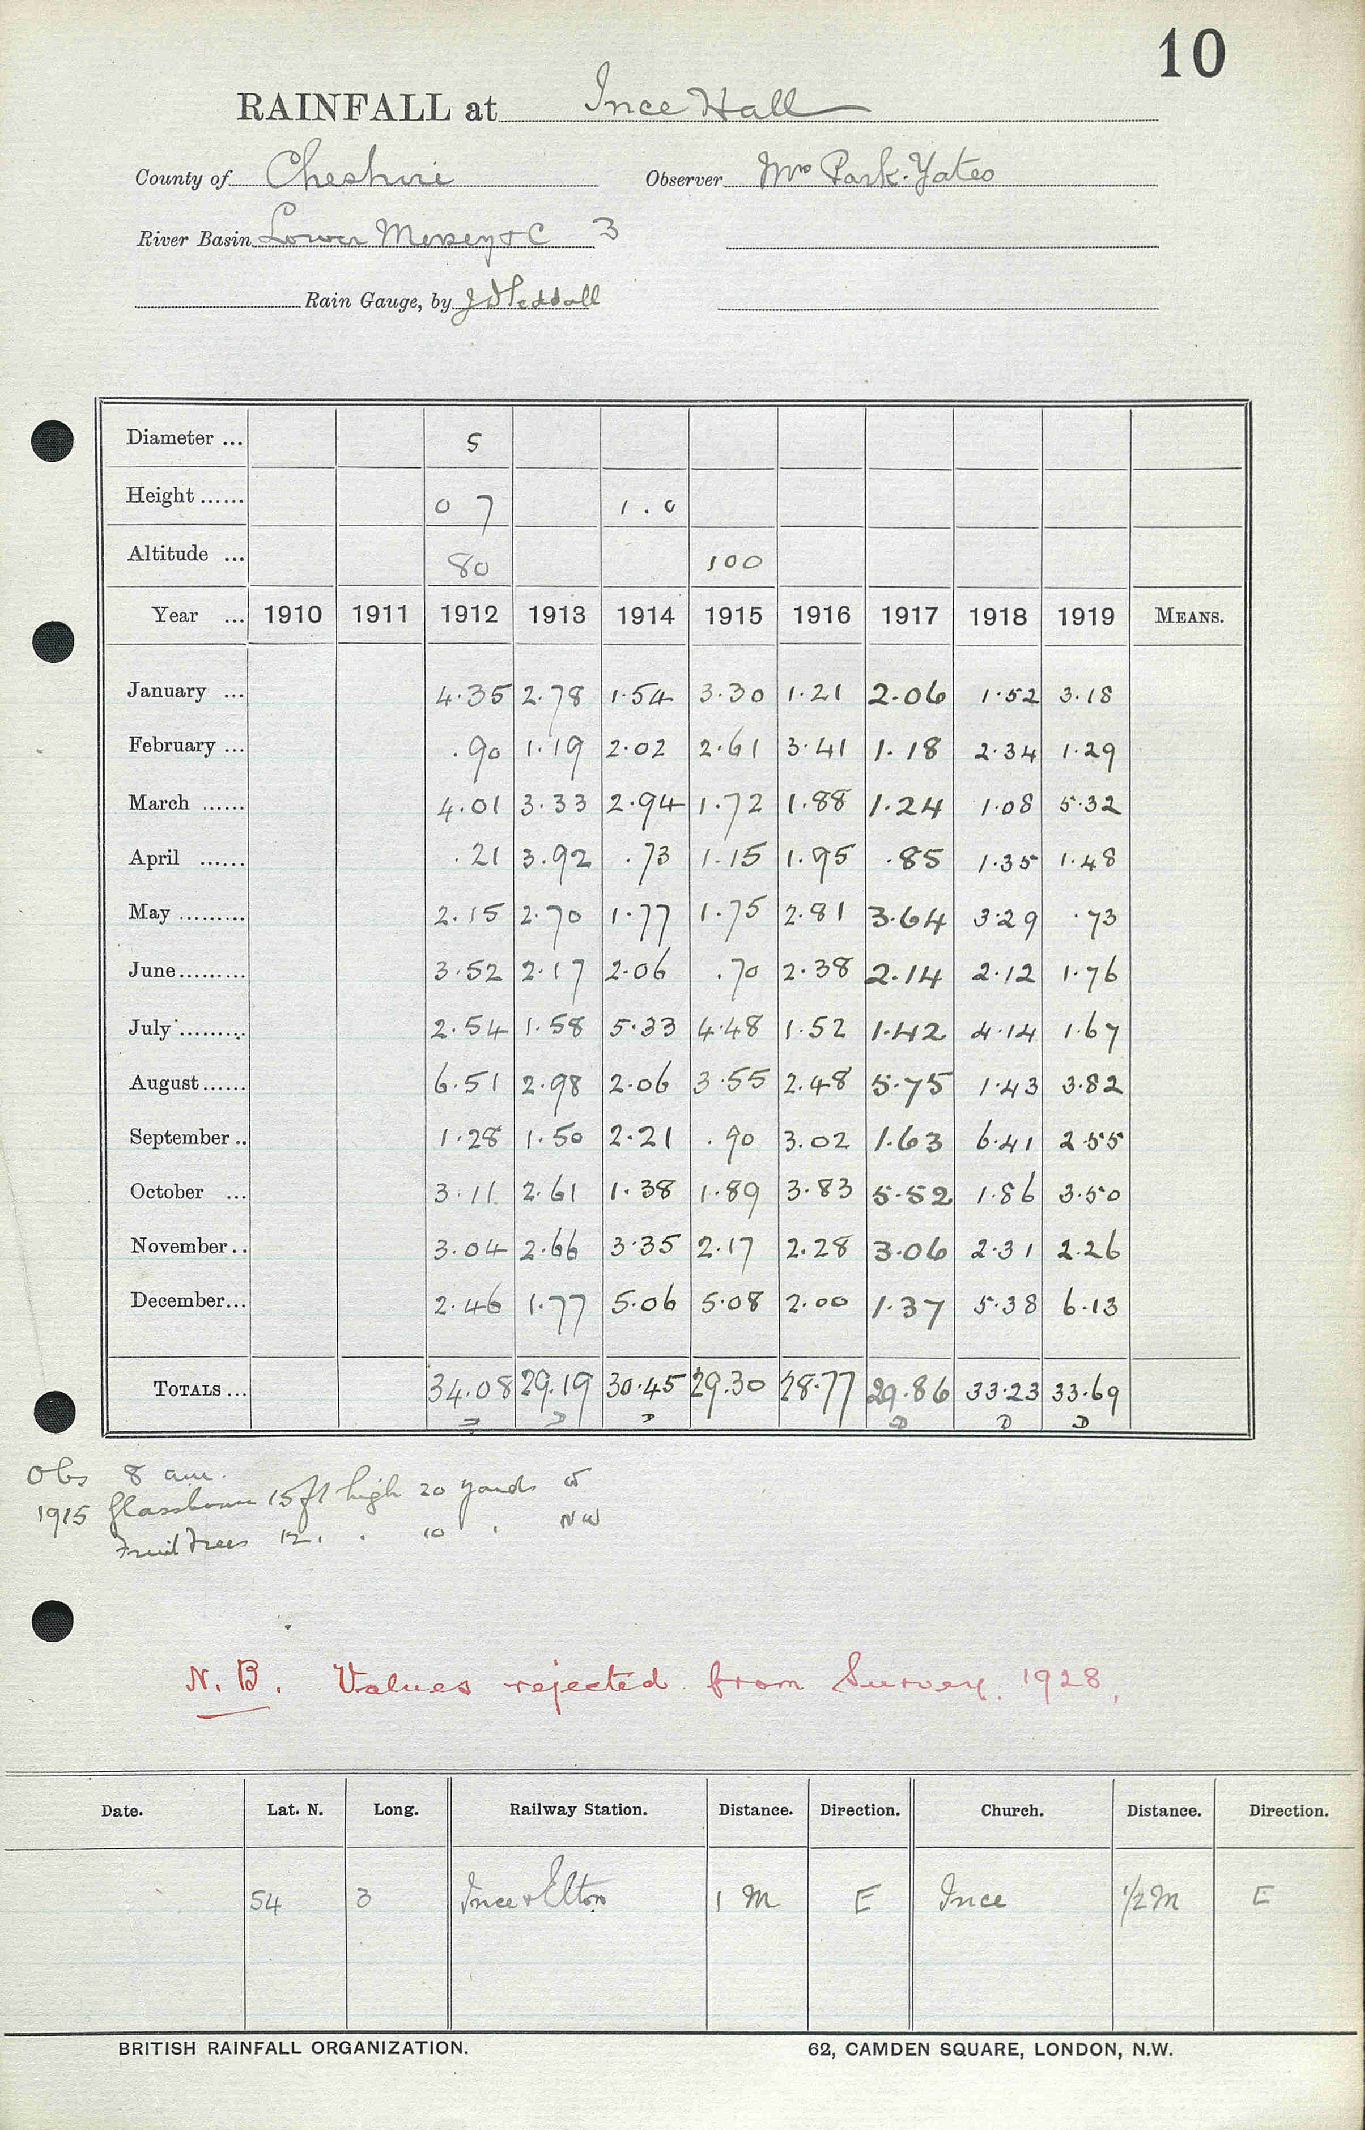 10
RAINFALL at Ince Hall
County of Cheshire Observer Mrs Park-Yates
River Basin Lower Mersey & C 3
Rain Gauge, by
Diameter ... 5
Height ...... 0 7 1.0
Altitude ... 80 100
Year ... 1910 1911 1912 1913 1914 1915 1916 1917 1918 1919 MEANS.
January ... 4.35 2.78 1.54 3.30 1.21 2.06 1.52 3.18
February ... .90 1.19 2.02 2.61 3.41 1.18 2.34 1.29
March ...... 4.01 3.33 2.94 1.72 1.88 1.24 1.08 5.32
April ...... .21 3.92 .73 1.15 1.95 .85 1.35 1.48
May ......... 2.15 2.70 1.77 1.75 2.81 3.64 3.29 .73
June ......... 3.52 2.17 2.06 .70 2.38 2.14 2.12 1.76
July ......... 2.54 1.58 5.33 4.48 1.52 1.42 4.14 1.67
August ...... 6.51 2.98 2.06 3.55 2.48 5.75 1.43 3.82
September .. 1.28 1.50 2.21 .90 3.02 1.63 6.41 2.55
October ... 3.11 2.61 1.38 1.89 3.83 5.52 1.86 3.50
November .. 3.04 2.66 3.35 2.17 2.28 3.06 2.31 2.26
December ... 2.46 1.77 5.06 5.08 2.00 1.37 5.38 6.13
TOTALS ... 34.08 29.19 30.45 29.30 28.77 29.86 33.23 33.69
D D D D D
Obs 8 am.
1915 Glasshouse 15ft high 20 yards W
Fruit Trees 12 . . 10 . NW
N.B. Values rejected from Survey. 1928.
Date. Lat. N. Long. Railway Station. Distance. Direction. Church. Distance. Direction.
54 3 Ince & Elton 1 M E Ince 1/2 M E
BRITISH RAINFALL ORGANIZATION. 62, CAMDEN SQUARE, LONDON, N.W.